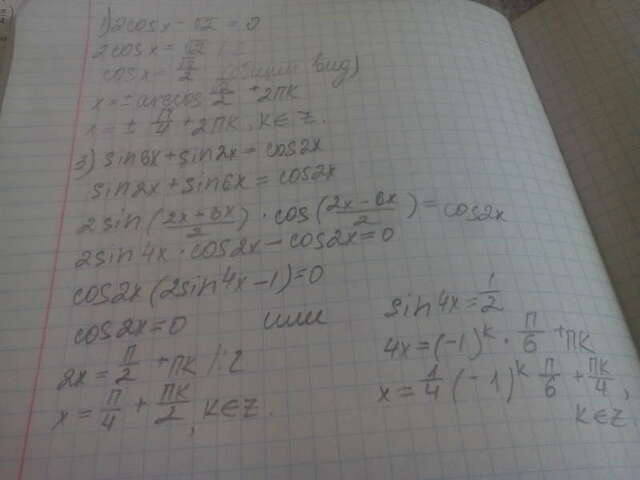 1) 2cosx - √2 = 0
2cosx = √2 / :2
cosx = √2/2 (общий вид)
x = ± arccos √2/2 + 2πk
x = ± π/4 + 2πk, k ∈ Z.
3) sin6x + sin2x = cos2x
sin2x + sin6x = cos2x
2sin(2x+6x/2) · cos(2x-6x/2) = cos2x
2sin4x · cos2x - cos2x = 0
cos2x(2sin4x - 1) = 0
cos2x = 0 или sin4x = 1/2
2x = π/2 + πk / :2
x = π/4 + πk/2, k ∈ Z.
4x = (-1)^k · π/6 + πk
x = 1/4 (-1)^k π/6 + πk/4,
k ∈ Z.